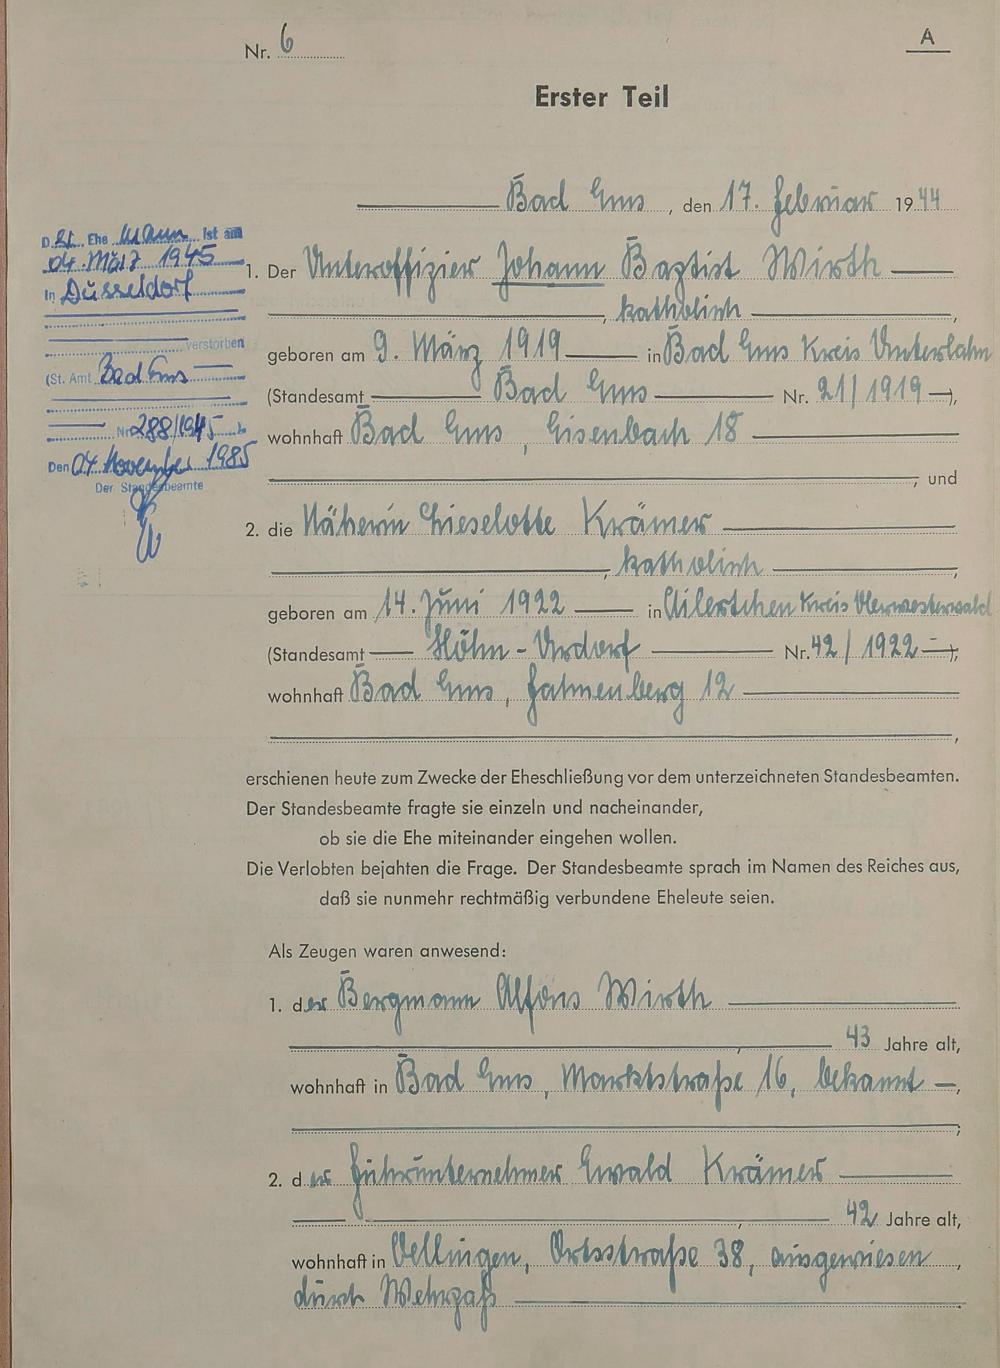 Nr. 6
A
Erster Teil
Bad Ems, den 17. Februar 1944
Der Ehemann ist am
04. März 1945
in Düsseldorf
verstorben
(St. Amt Bad Ems
Nr. 288/1945
Den 04. November 1985
Der Standesbeamte
1. Der Unteroffizier Johann Baptist Wirth
, katholisch ,
geboren am 9. März 1919 in Bad Ems Kreis Unterlahn
(Standesamt Bad Ems Nr. 21/1919 ),
wohnhaft Bad Ems, Eisenbach 18
, und
2. die Näherin Lieselotte Krämer
, katholisch ,
geboren am 14. Juni 1922 in Ailertchen Kreis Oberwesterwald
(Standesamt Höhn-Urdorf Nr. 42/1922 ),
wohnhaft Bad Ems, Fahnenberg 12
,
erschienen heute zum Zwecke der Eheschließung vor dem unterzeichneten Standesbeamten.
Der Standesbeamte fragte sie einzeln und nacheinander,
ob sie die Ehe miteinander eingehen wollen.
Die Verlobten bejahten die Frage. Der Standesbeamte sprach im Namen des Reiches aus,
daß sie nunmehr rechtmäßig verbundene Eheleute seien.
Als Zeugen waren anwesend:
1. der Bergmann Alfons Wirth
, 43 Jahre alt,
wohnhaft in Bad Ems, Marktstraße 16, bekannt ,
;
2. der Fuhrunternehmer Ewald Krämer
, 42 Jahre alt,
wohnhaft in Oellingen, Ortsstraße 38, ausgewiesen ,
durch Wehrpaß